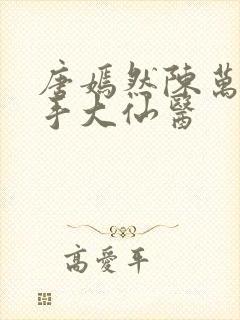 唐嫣然陳萬
手大仙醫
高愛平